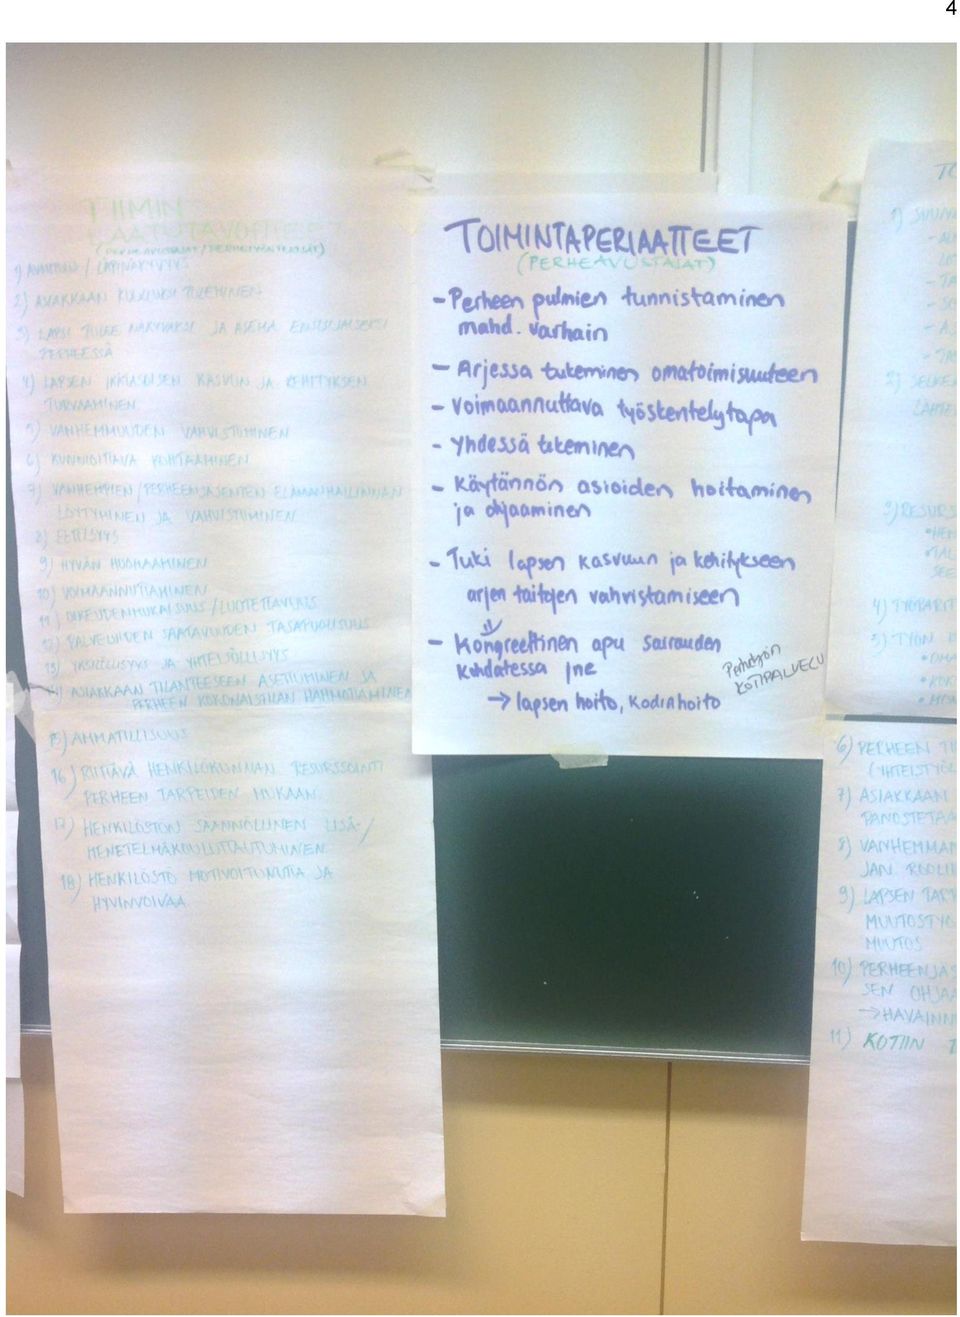 4
TIIMIN
LAATUTAVOITTEET
1) AVOIMUUS / LÄPINÄKYVYYS
2) ASIAKKAAN KUULLUKSI TULEMINEN
3) LAPSI TULEE NÄKYVÄKSI JA ASEMA ENSISIJAISEKSI
PERHEESSÄ
4) LAPSEN IKÄTASOISEN KASVUN JA KEHITYKSEN
TURVAAMINEN
5) VANHEMMUUDEN VAHVISTUMINEN
6) KUNNIOITTAVA KOHTAAMINEN
7) VANHEMPIEN / PERHEENJÄSENTEN ELÄMÄNHALLINNAN
LÖYTYMINEN JA VAHVISTUMINEN
8) EETTISYYS
9) HYVÄN HUOMAAMINEN
10) VOIMAANNUTTAMINEN
11) OIKEUDENMUKAISUUS / LUOTETTAVUUS
12) PALVELUIDEN SAATAVUUDEN TASAPUOLISUUS
13) YKSILÖLLISYYS JA YHTEISÖLLISYYS
14) ASIAKKAAN TILANTEESEEN ASETTUMINEN JA
PERHEEN KOKONAISTILAN HAHMOTTAMINEN
15) AMMATILLISUUS
16) RIITTÄVÄ HENKILÖKUNNAN RESURSSOINTI
PERHEEN TARPEIDEN MUKAAN
17) HENKILÖSTÖN SÄÄNNÖLLINEN LISÄ- /
MENETELMÄKOULUTTAUTUMINEN
18) HENKILÖSTÖ MOTIVOITUNUTTA JA
HYVINVOIVAA
TOIMINTAPERIAATTEET
(PERHEAVUSTAJAT)
- Perheen pulmien tunnistaminen
mahd. varhain
- Arjessa tukeminen omatoimisuuteen
- Voimaannuttava työskentelytapa
- Yhdessä tekeminen
- Käytännön asioiden hoitaminen
ja ohjaaminen
- Tuki lapsen kasvuun ja kehitykseen
arjen taitojen vahvistamiseen
- Kongreettinen apu sairauden
kohdatessa jne
→ lapsen hoito, kodinhoito
Perhetyön
KOTIPALVELU
TO
1)
2) SELKE
3) RESURS
• HEN
4) TYÖPARIT
5) TYÖN
6) PERHEEN
(YHTEISTYÖ
7) ASIAKKAAN
PANOSTETAA
8) VANHEMMA
JAN ROOLI
9) LAPSEN TAR
MUUTOSTYÖ
MUUTOS
10) PERHEENJÄS
SEN OHJA
→ HAVAINN
11) KOTIIN T